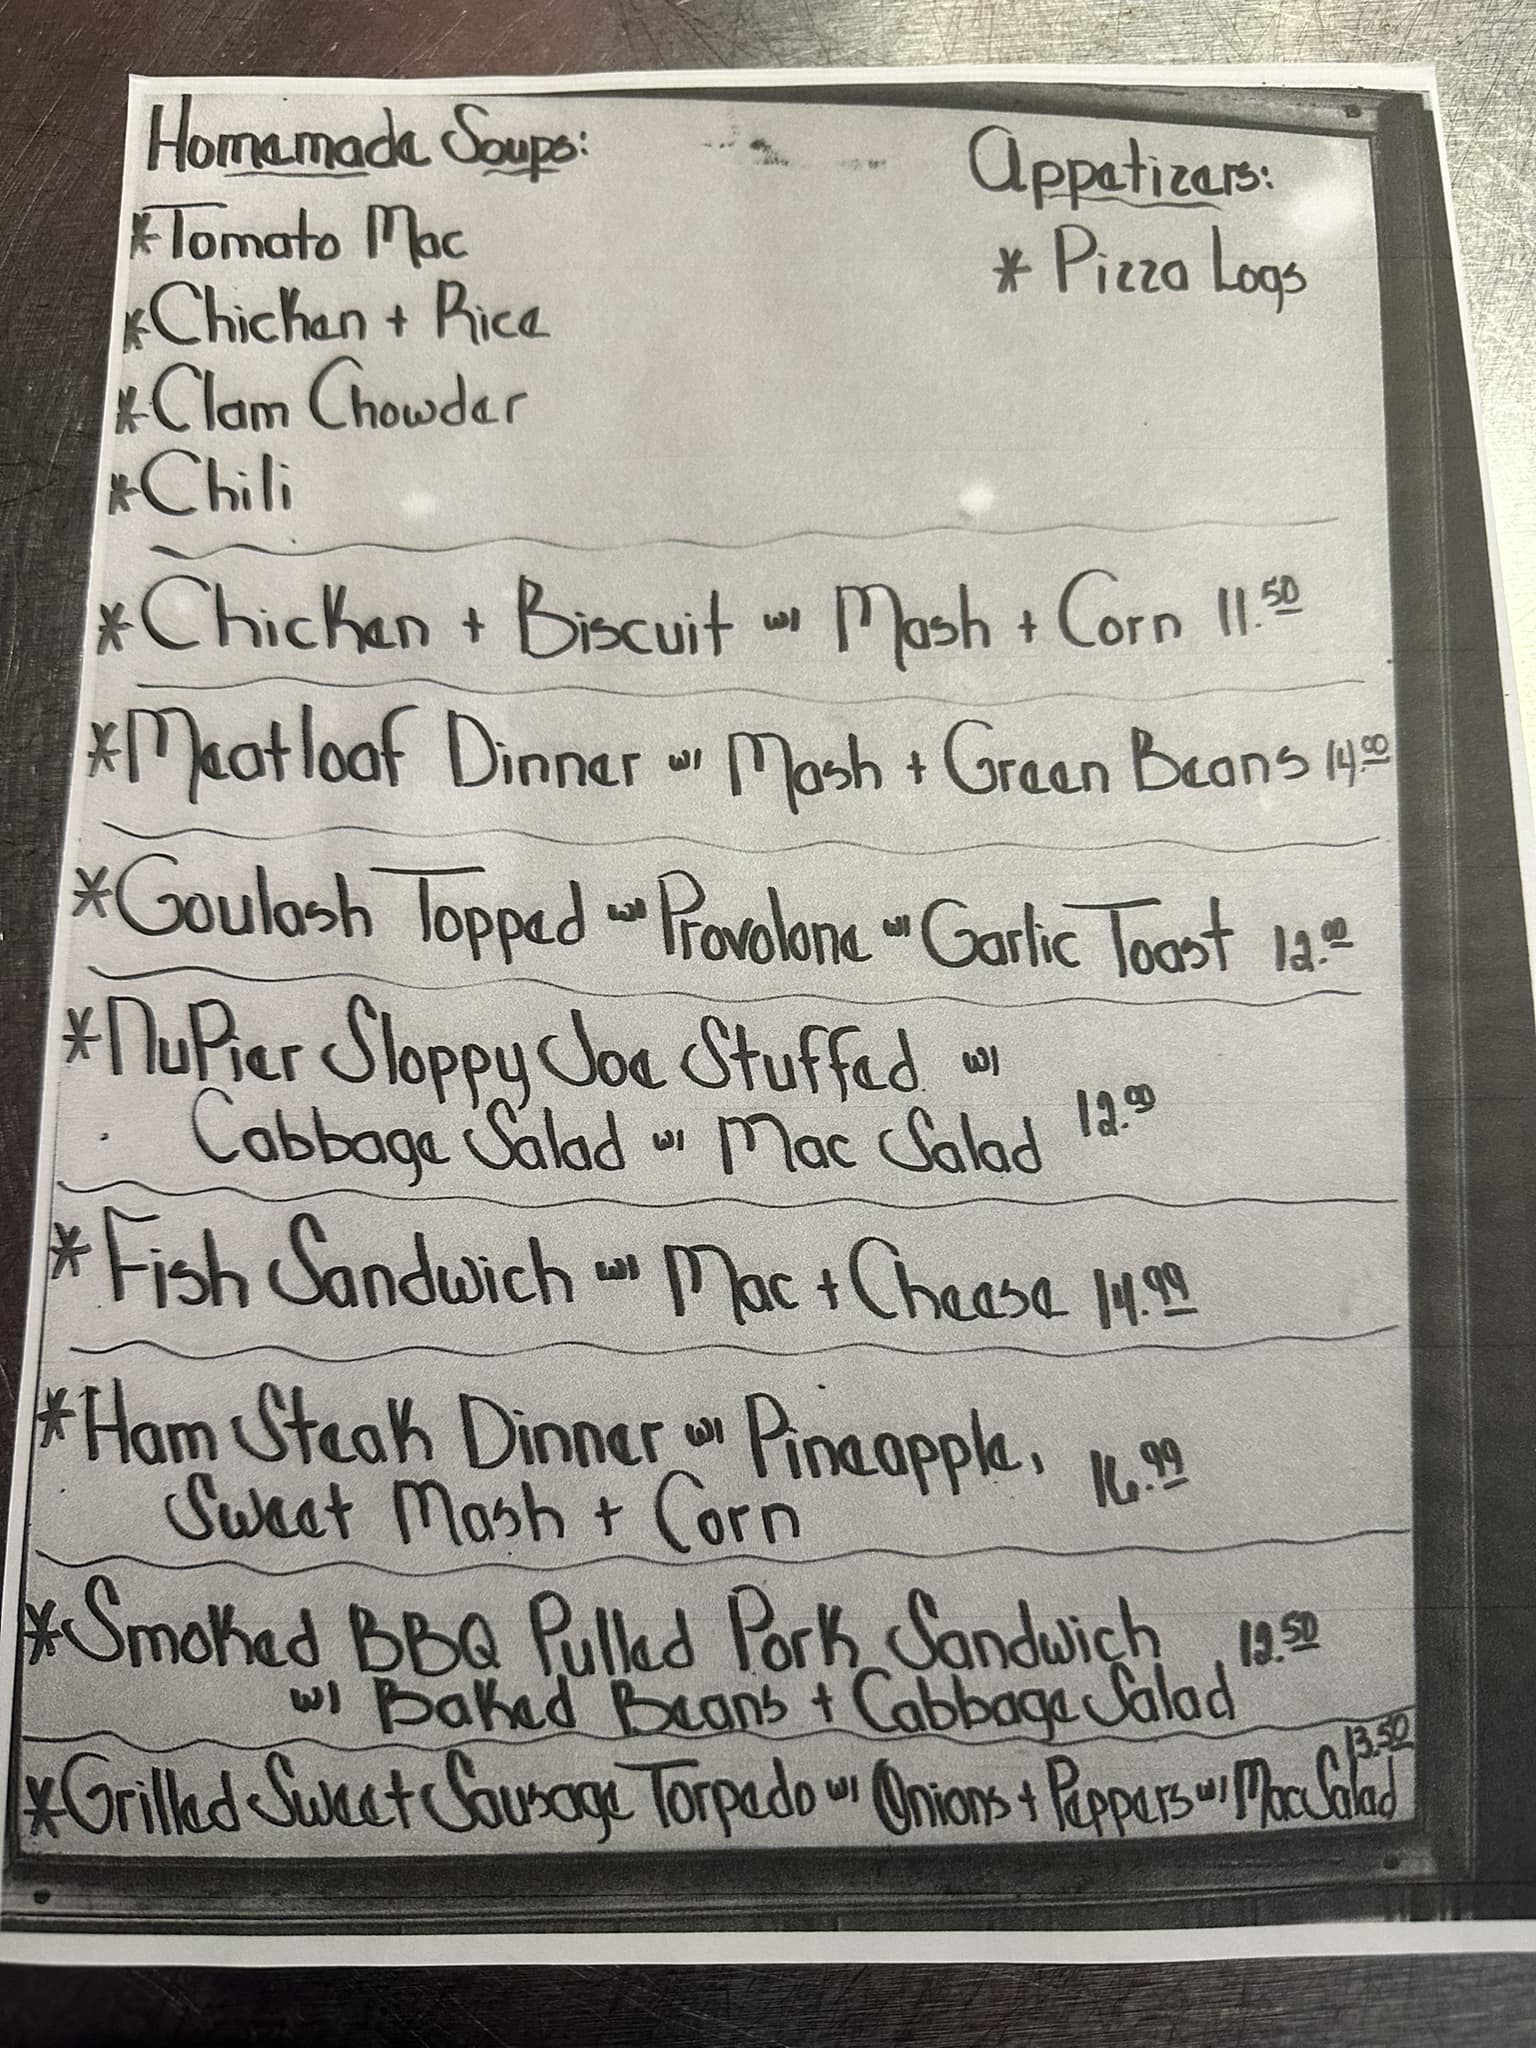 Homemade Soups:
*Tomato Mac
*Chicken + Rice
*Clam Chowder
*Chili
Appetizers:
* Pizza Logs
*Chicken + Biscuit w/ Mash + Corn 11.50
*Meatloaf Dinner w/ Mash + Green Beans 14.00
*Goulash Topped w/ Provolone w/ Garlic Toast 12.00
*NuPier Sloppy Joe Stuffed w/
Cabbage Salad w/ Mac Salad 12.00
*Fish Sandwich w/ Mac + Cheese 14.99
*Ham Steak Dinner w/ Pineapple,
Sweet Mash + Corn 16.99
*Smoked BBQ Pulled Pork Sandwich 12.50
w/ Baked Beans + Cabbage Salad
*Grilled Sweet Sausage Torpedo w/ Onions + Peppers w/ Mac Salad 13.50